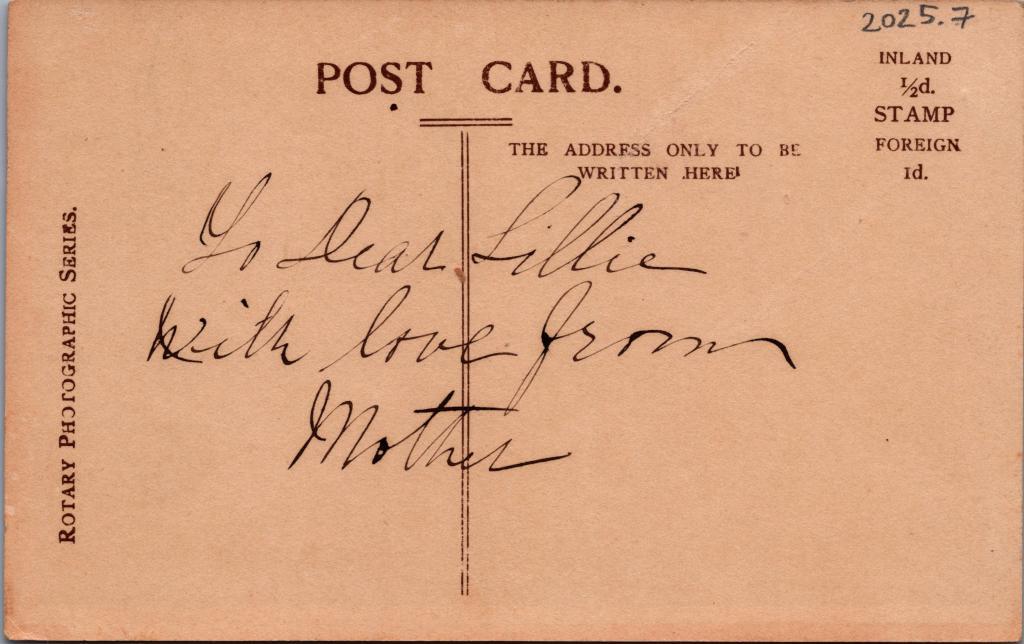 2025.7
POST CARD.
INLAND
½d.
STAMP
FOREIGN
1d.
THE ADDRESS ONLY TO BE
WRITTEN HERE
To Dear Lillie
With love from
Mother
ROTARY PHOTOGRAPHIC SERIES.